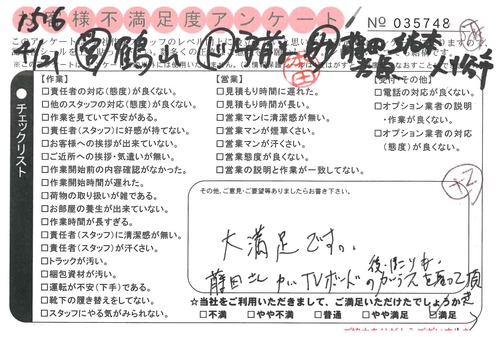 お客様不満足度アンケート
№ 035748
1506
4/21
チェックリスト
【作業】
□責任者の対応(態度)が良くない。
□他のスタッフの対応(態度)が良くない。
□作業を見ていて不安がある。
□責任者(スタッフ)に好感が持てない。
□お客様への挨拶が出来ていない。
□ご近所への挨拶・気遣いが無い。
□作業開始前の内容確認がなかった。
□作業開始時間が遅れた。
□荷物の取り扱いが雑である。
□お部屋の養生が出来ていない。
□作業時間が長すぎる。
□責任者(スタッフ)に清潔感が無い。
□責任者(スタッフ)が汗くさい。
□トラックが汚い。
□梱包資材が汚い。
□運転が不安(下手)である。
□靴下の履き替えをしてない。
□スタッフにやる気がみられない。
【営業】
□見積もり時間に遅れた。
□見積もり時間が長い。
□営業マンに清潔感が無い。
□営業マンが煙草くさい。
□営業マンが汗くさい。
□営業態度が良くない。
□営業の説明と作業が一致してない。
【受付・その他】
□電話の対応が良くない。
□オプション業者の説明
・作業が良くない。
□オプション業者の対応
(態度)が良くない。
その他、ご意見・ご要望等ありましたらお書き下さい。
大満足です。
藤田さん がTVボードの
☆当社をご利用いただきまして、ご満足いただけたでしょうか
□不満 □やや不満 □普通 □やや満足 □満足